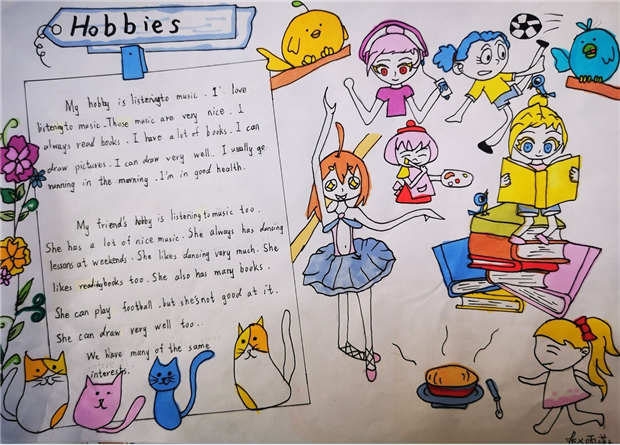 Hobbies
My hobby is listening to music. I love
listening to music. Those music are very nice. I
always read books. I have a lot of books. I can
draw pictures. I can draw very well. I usually go
running in the morning. I'm in good health.
My friend's hobby is listening to music too.
She has a lot of nice music. She always has dancing
lessons at weekends. She likes dancing very much. She
likes reading books too. She also has many books.
She can play football. but she's not good at it.
She can draw very well too..
We have many of the same
interests.